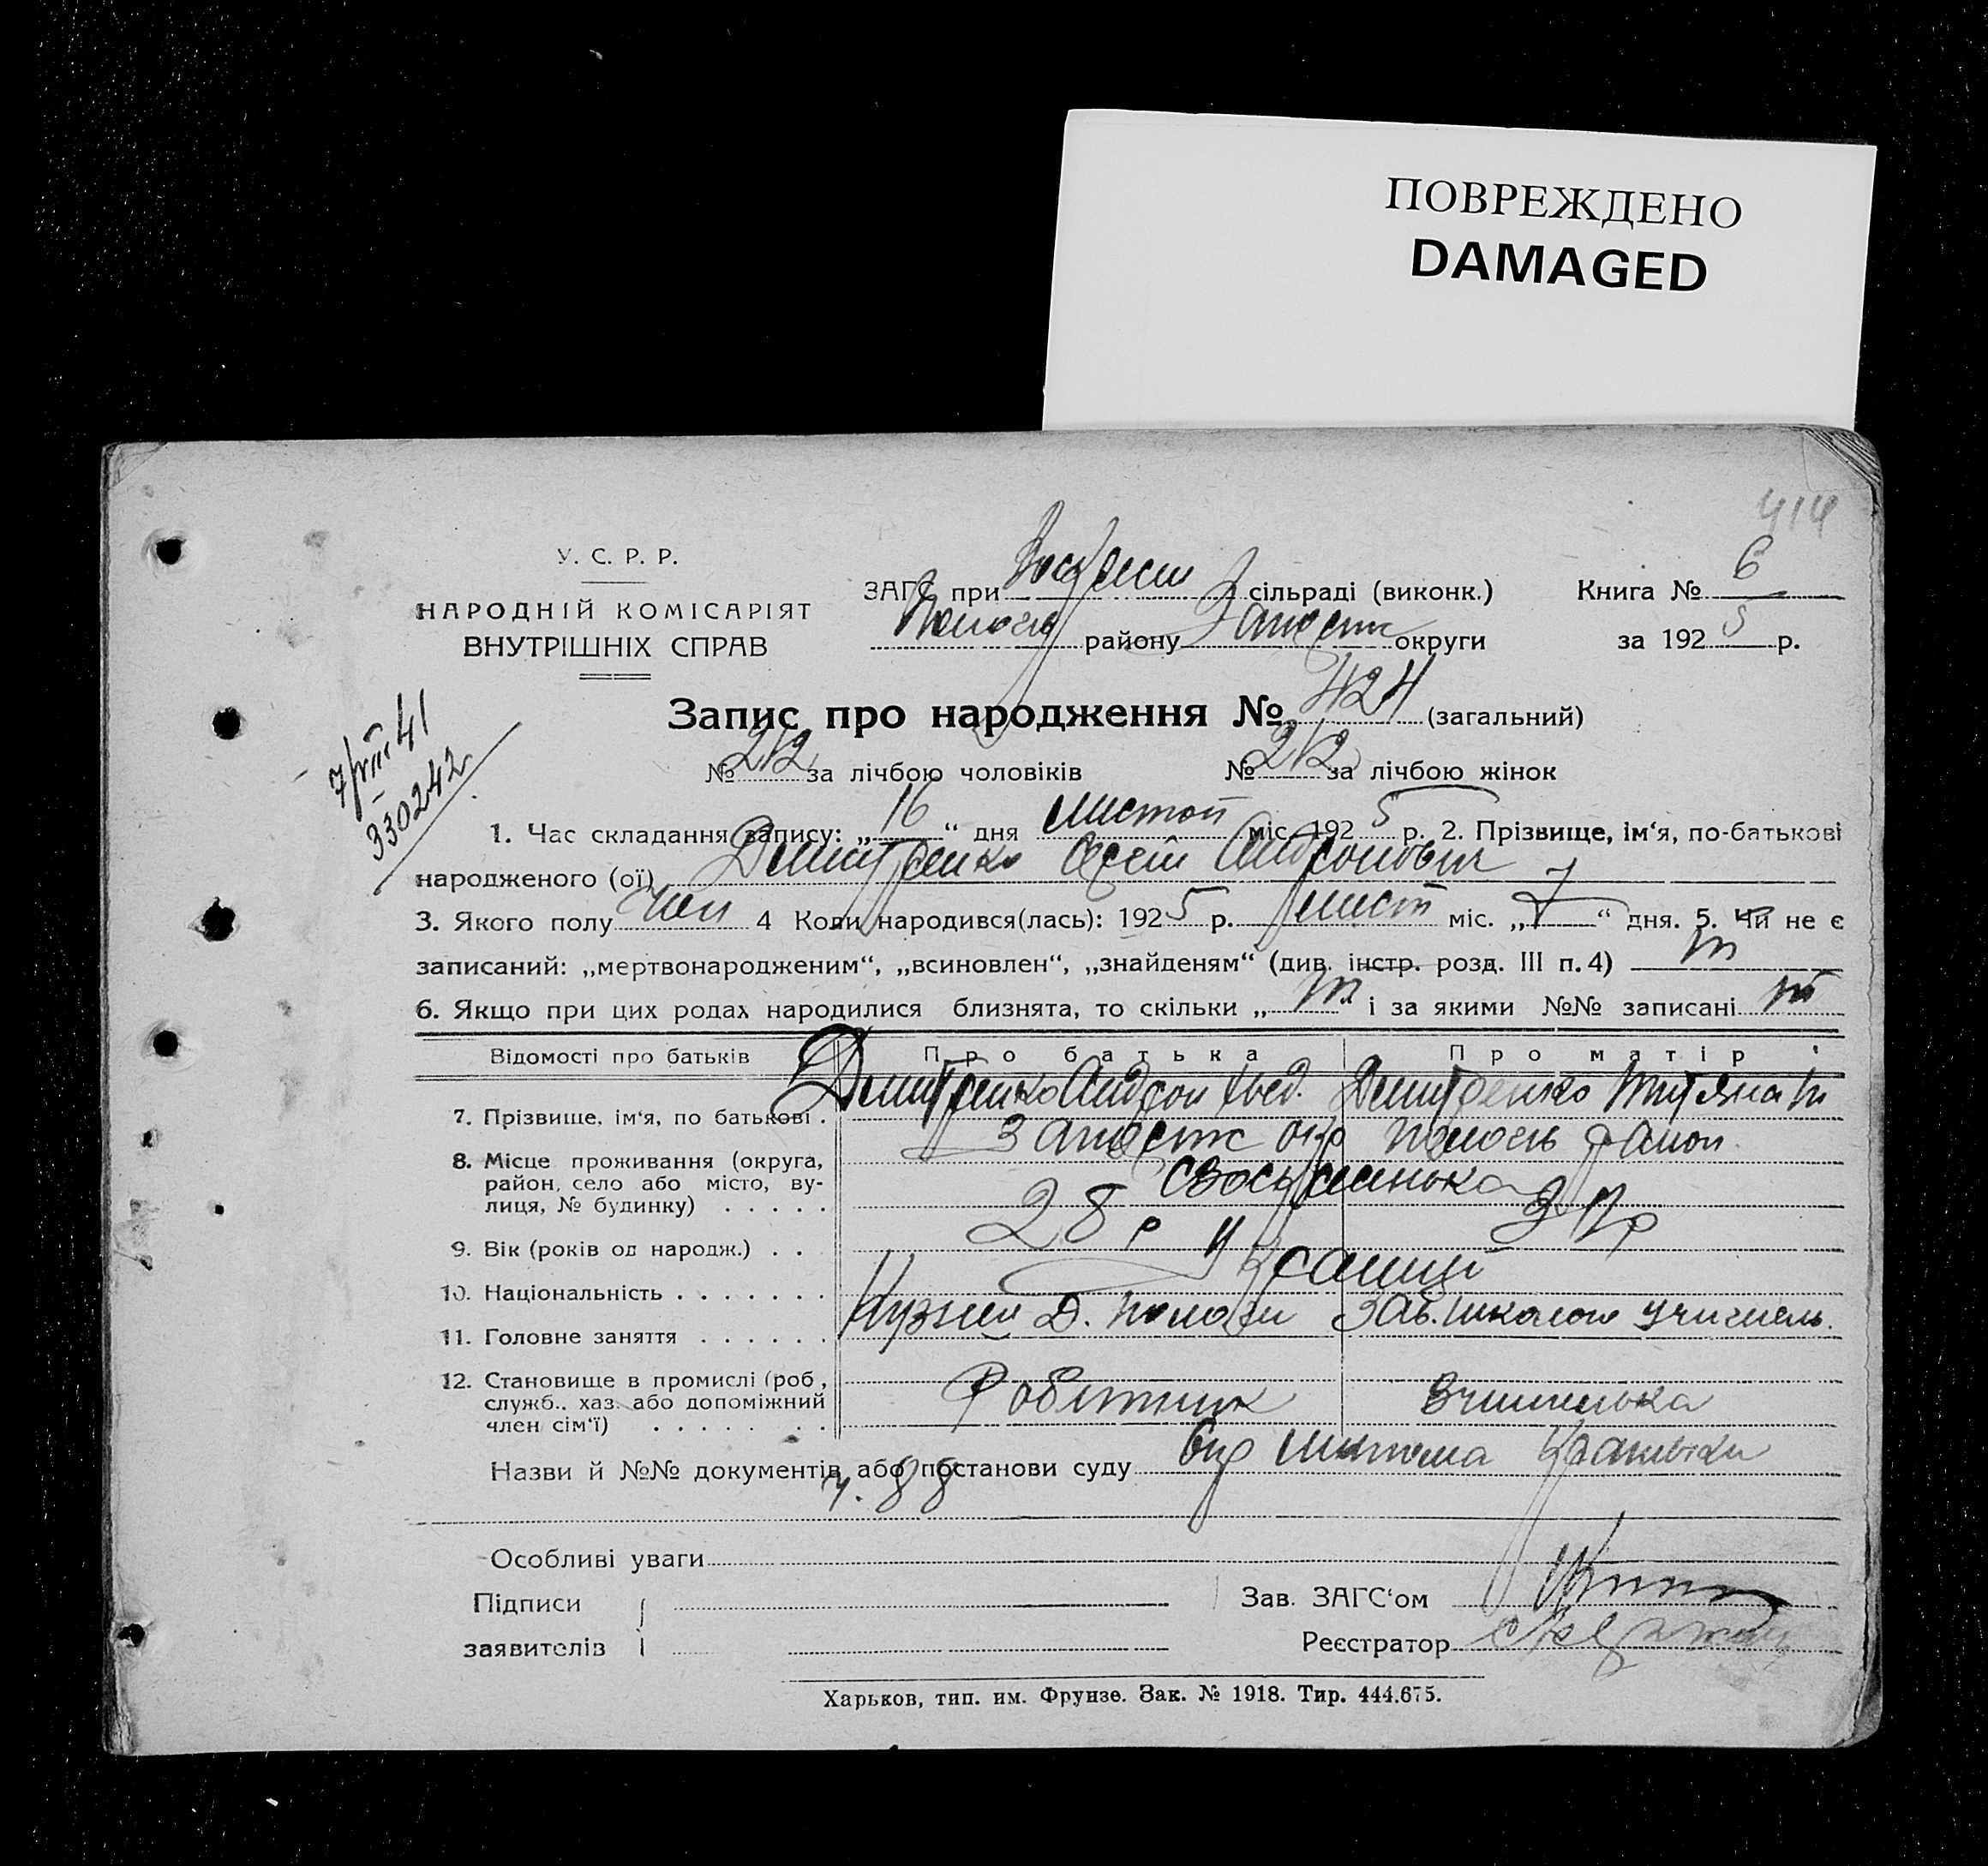 ПОВРЕЖДЕНО
DAMAGED
414
У. С. Р. Р.
НАРОДНІЙ КОМІСАРІЯТ
ВНУТРІШНІХ СПРАВ
ЗАГС при сільраді (виконк.)
району округи
Книга № 6
за 1925 р.
7/VIII 41
330242
Запис про народження № 424 (загальний)
№ 212 за лічбою чоловіків № 212 за лічбою жінок
1. Час складання запису: „16“ дня листоп міс. 1925 р. 2. Прізвище, ім‘я, по-батькові
народженого (ої) Дмитренко Андронович
3. Якого полу чол 4 Коли народився(лась): 1925 р. лист міс. „7“ дня. 5. Чи не є
записаний: „мертвонародженим“, „всиновлен“, „знайденям“ (див. інстр. розд. III п. 4)
6. Якщо при цих родах народилися близнята, то скільки „ “ і за якими №№ записані
Відомості про батьків Про батька Про матір
7. Прізвище, ім‘я, по батькові . Дмитренко Андрон Хвед. Дмитренко Титяна
8. Місце проживання (округа, район, село або місто, вулиця, № будинку) . . . . . Запорізьк окр район
9. Вік (років од народж.) . . 28 р
10. Національність . . . . . . . Українці
11. Головне заняття . . . . . . Зав. школою учитель.
12. Становище в промислі (роб., служб., хаз. або допоміжний член сім‘ї) . . . . . . . . Робітник Вчителька
Назви й №№ документів або постанови суду
ч. 88
Особливі уваги
Підписи
заявителів
Зав. ЗАГС‘ом
Реєстратор
Харьков, тип. им. Фрунзе. Зак. № 1918. Тир. 444.675.